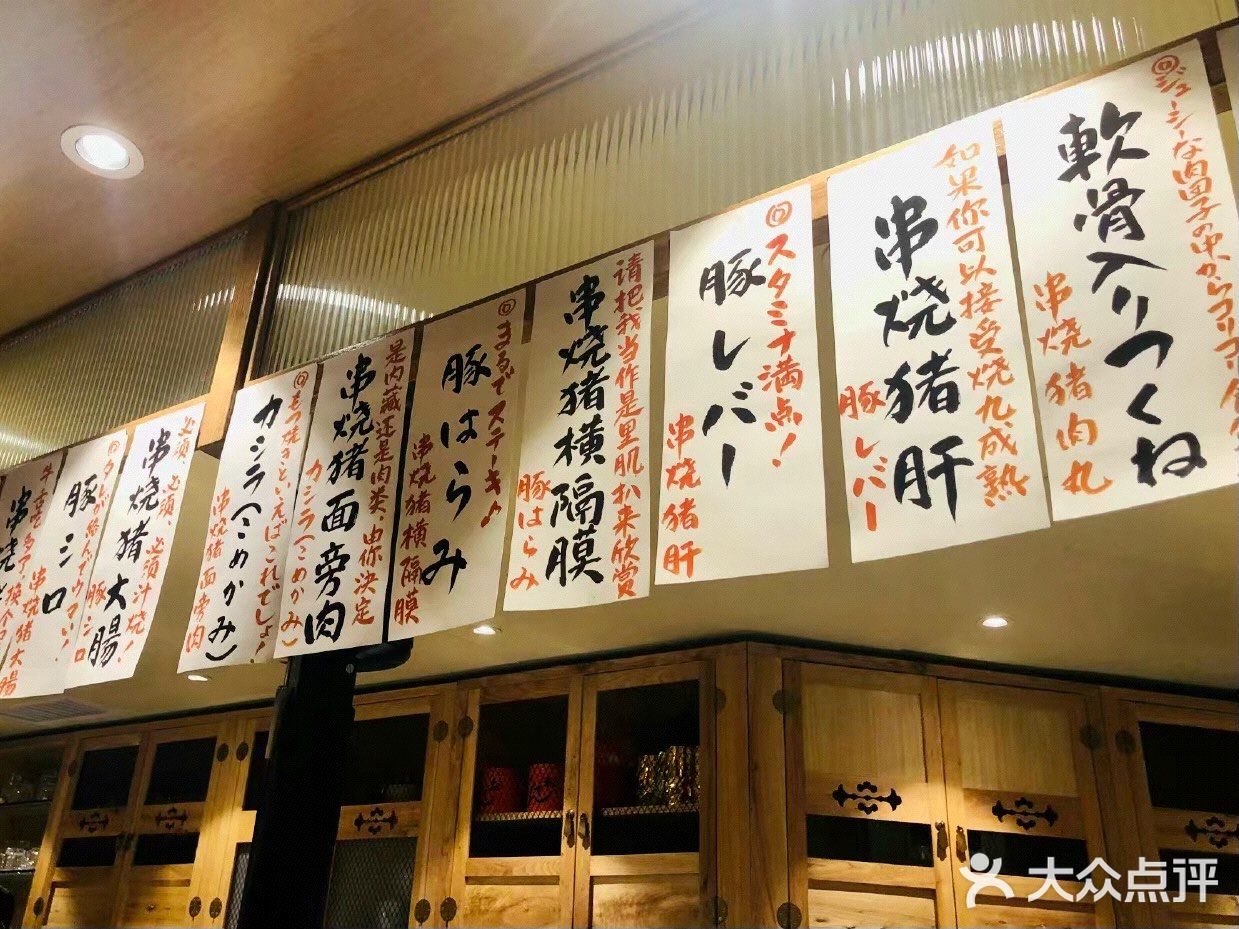 ジューシーな肉団子の中からコリコリ
軟骨入りつくね
串烧猪肉丸
如果你可以接受烧九成熟
串烧猪肝
豚レバー
スタミナ満点！
豚レバー
串烧猪肝
请把我当作是里肌扒来欣赏
串烧猪横隔膜
豚はらみ
まるでステーキ♪
豚はらみ
串烧猪横隔膜
是内藏还是肉类，由你决定
串烧猪面旁肉
カシラ（こめかみ）
もつ焼きといえばこれでしょ！
カシラ（こめかみ）
串烧猪面旁肉
必须、必须、必须汁烧！
串烧猪大腸
豚シロ
タレが絡んでウマい！
豚シロ
串烧猪大腸
串烧
大众点评